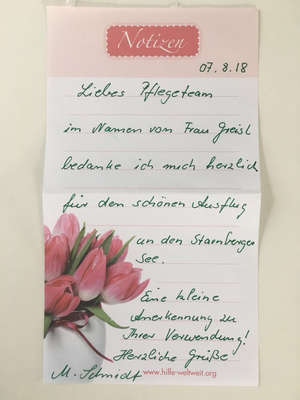 Notizen
07.8.18
Liebes Pflegeteam
im Namen von Frau Greisl
bedanke ich mich herzlich
für den schönen Ausflug
an den Starnberger
See.
Eine kleine
Anerkennung zu
Ihrer Verwendung!
Herzliche Grüße
M. Schmidt
www.hilfe-weltweit.org